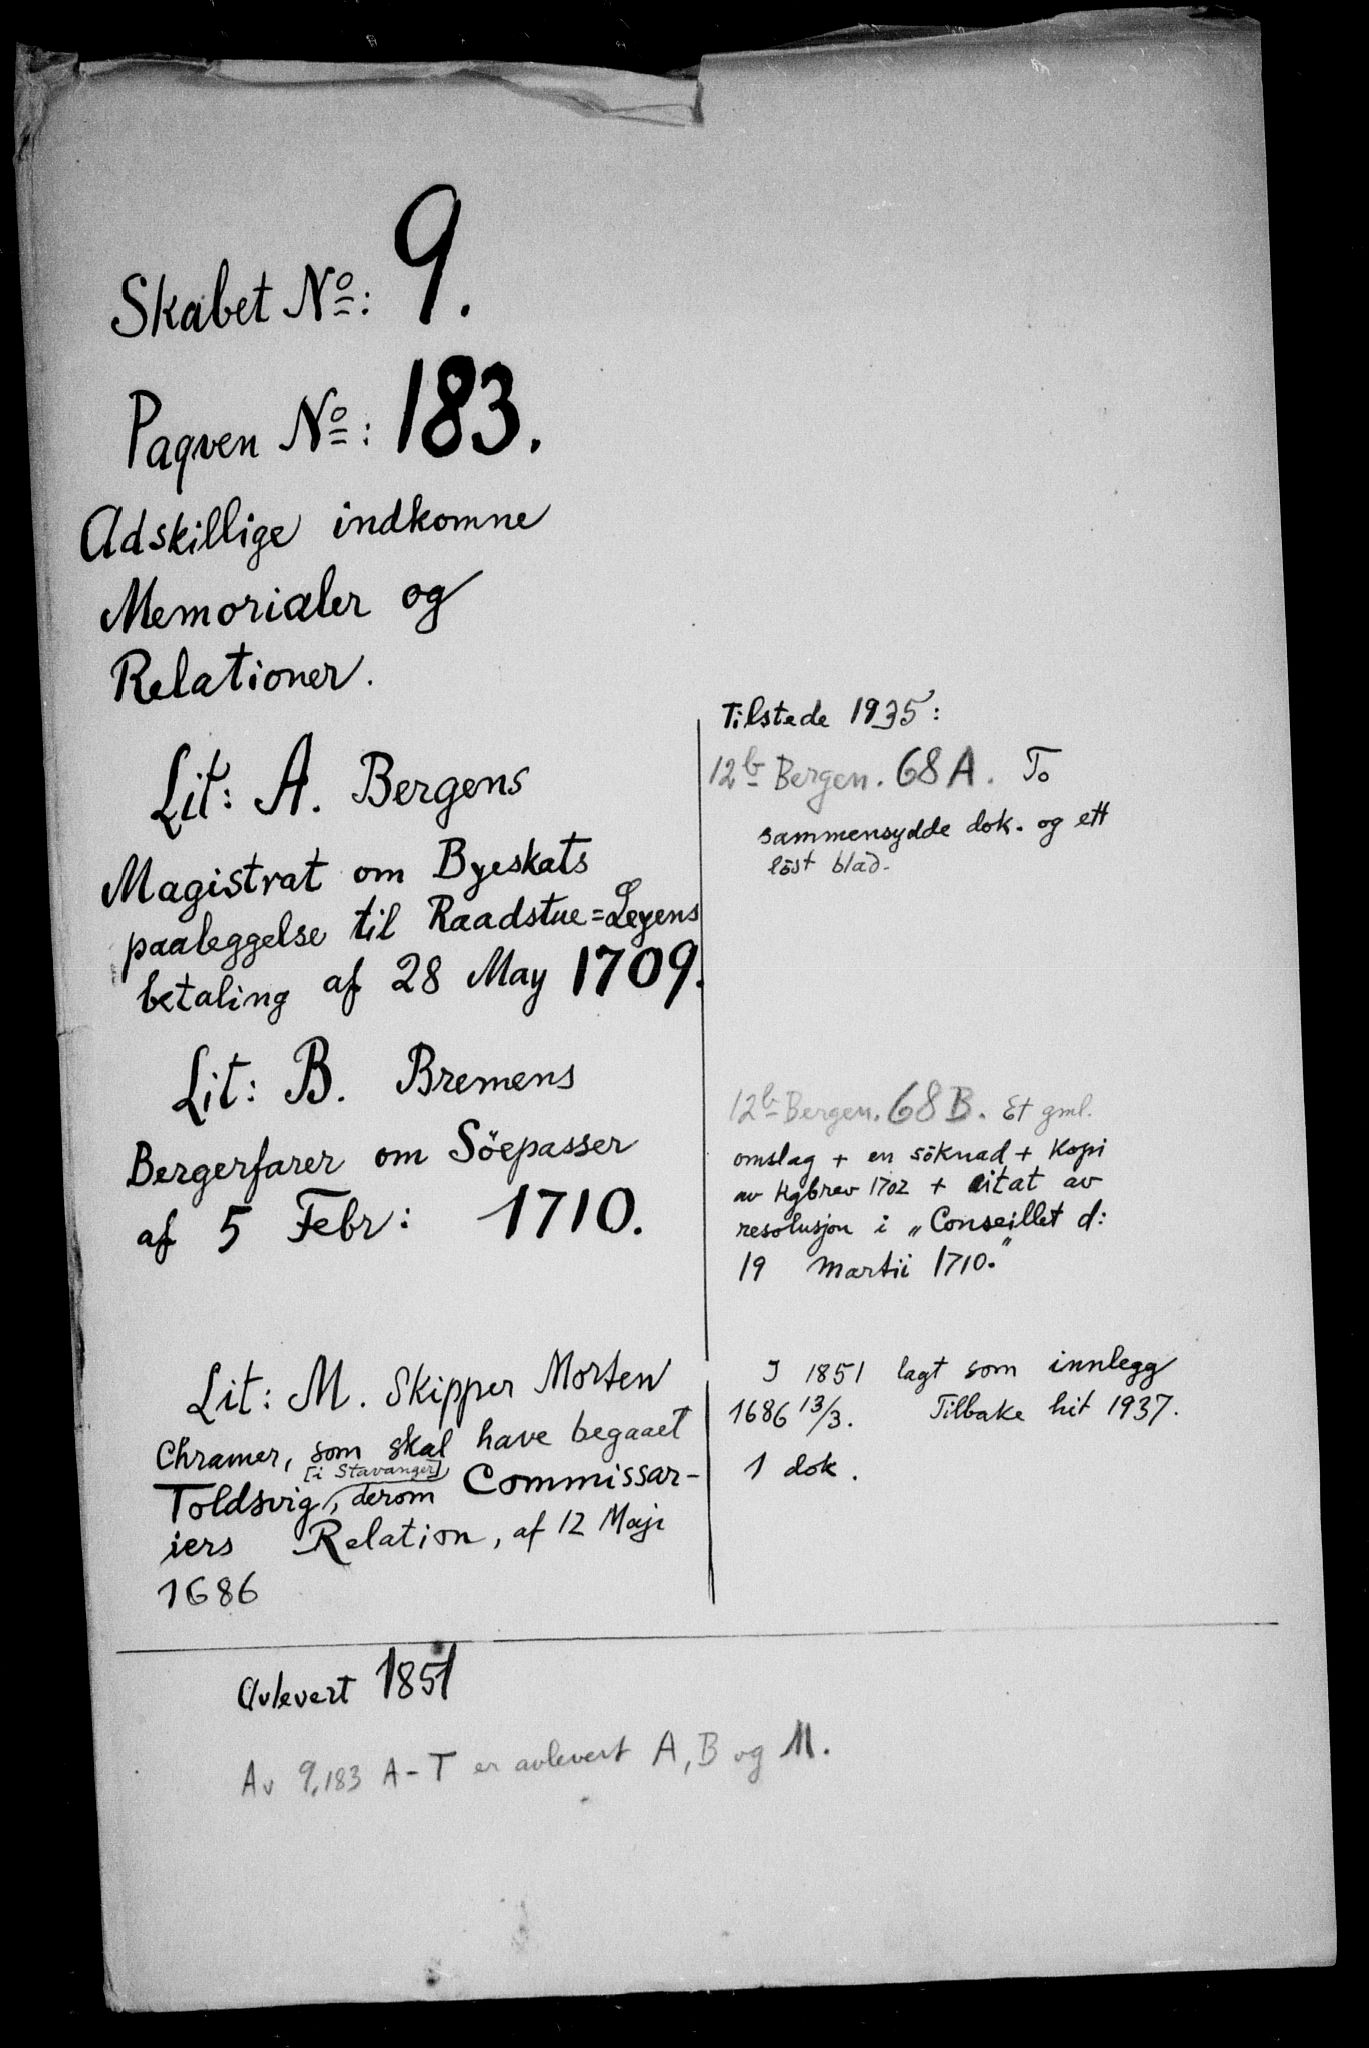 Skabet No: 9.
Paqven No: 183.
Adskillige indkomne
Memorialer og
Relationer.
Lit: A. Bergens
Magistrat om Byeskats
paaleggelse til Raadstue=Leyens
betaling af 28 May 1709.
Lit: B. Bremens
Bergerfarer om Söepasser
af 5 Febr: 1710.
Lit: M. Skipper Morten
Chramer, som skal have begaaet
[i Stavanger]
Toldsvig, derom Commissar-
iers Relation, af 12 Maji
1686
Tilstede 1935:
12b Bergen. 68 A. To
sammensydde dok. og ett
löst blad.
12b Bergen. 68 B. Et gml.
omslag + en söknad + kopi
av kgbrev 1702 + citat av
resolusjon i „Conseillet d:
19 Martii 1710.“
I 1851 lagt som innlegg
1686 13/3. Tilbake hit 1937.
1 dok.
Avlevert 1851
Av 9.183 A-T er avlevert A, B og M.